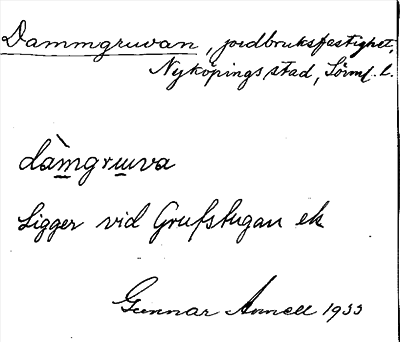 Dammgruvan, jordbruksfastighet,
Nyköpings stad, Sörml. l.
dàmgruva
Ligger vid Grufstugan ek
Gunnar Annell 1933